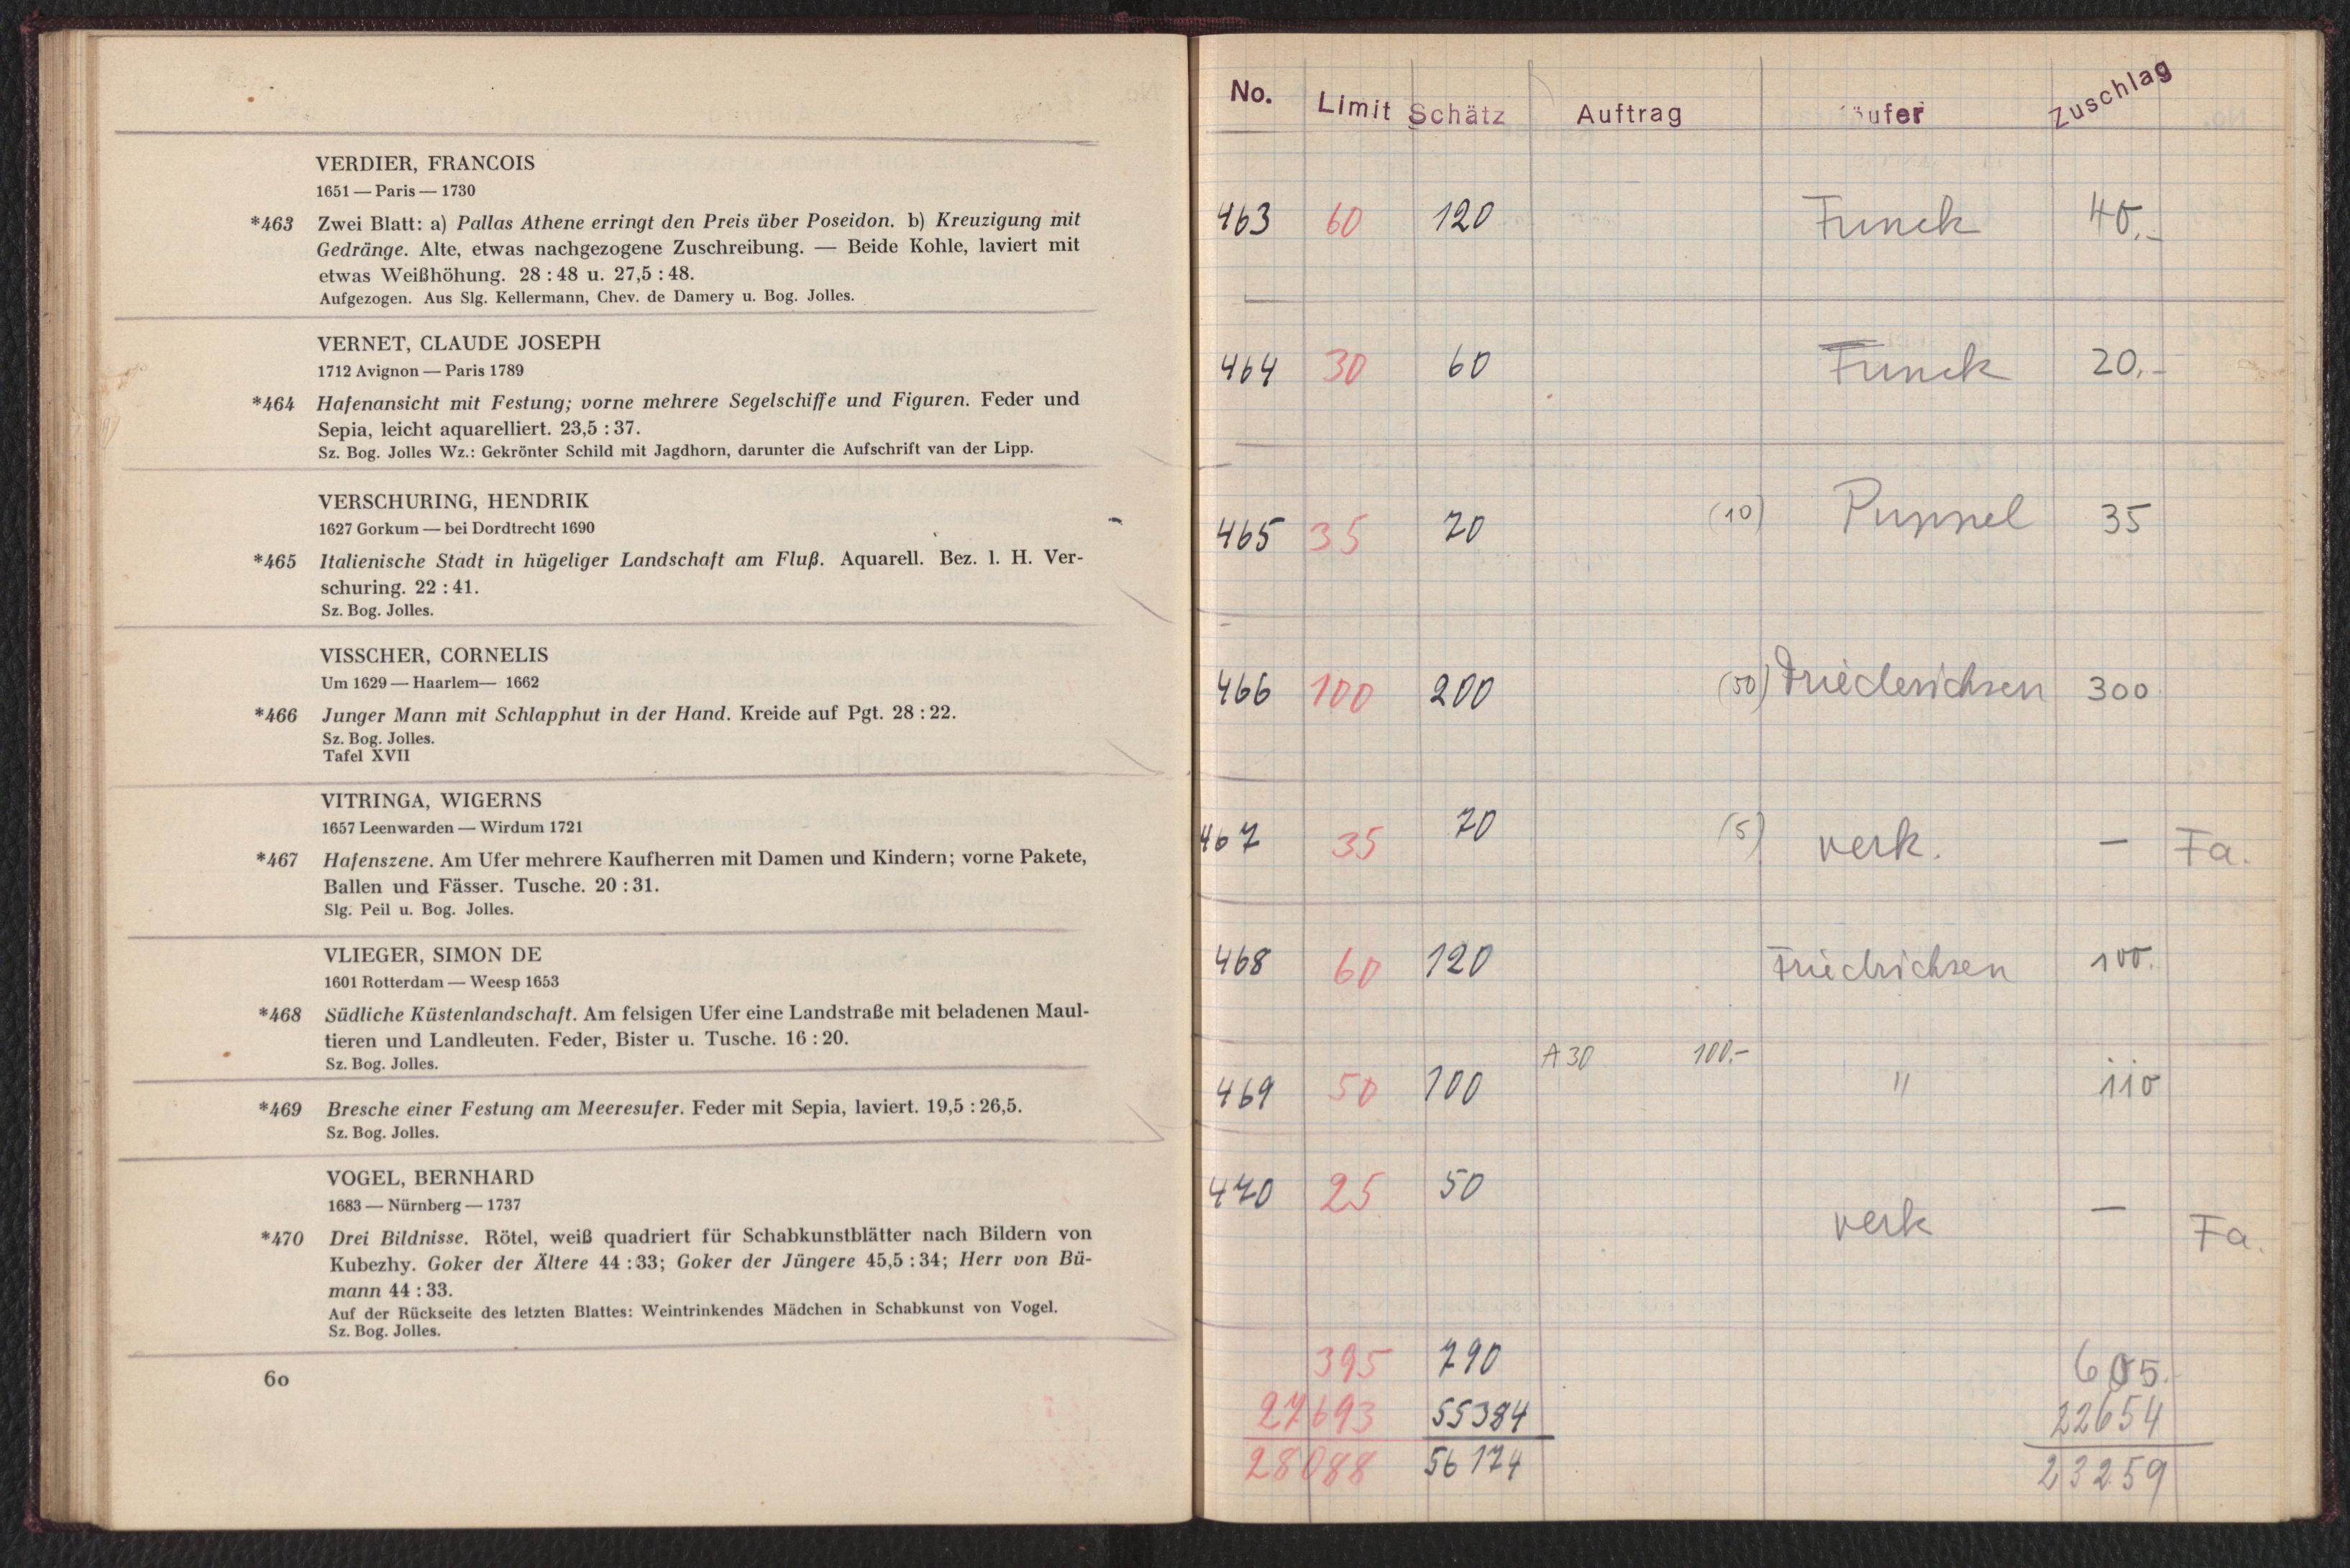 VERDIER, FRANCOIS
1651 — Paris — 1730
*463 Zwei Blatt: a) Pallas Athene erringt den Preis über Poseidon. b) Kreuzigung mit
Gedränge. Alte, etwas nachgezogene Zuschreibung. — Beide Kohle, laviert mit
etwas Weißhöhung. 28 : 48 u. 27,5 : 48.
Aufgezogen. Aus Slg. Kellermann, Chev. de Damery u. Bog. Jolles.
VERNET, CLAUDE JOSEPH
1712 Avignon — Paris 1789
*464 Hafenansicht mit Festung; vorne mehrere Segelschiffe und Figuren. Feder und
Sepia, leicht aquarelliert. 23,5 : 37.
Sz. Bog. Jolles Wz.: Gekrönter Schild mit Jagdhorn, darunter die Aufschrift van der Lipp.
VERSCHURING, HENDRIK
1627 Gorkum — bei Dordtrecht 1690
*465 Italienische Stadt in hügeliger Landschaft am Fluß. Aquarell. Bez. l. H. Ver-
schuring. 22 : 41.
Sz. Bog. Jolles.
VISSCHER, CORNELIS
Um 1629 — Haarlem— 1662
*466 Junger Mann mit Schlapphut in der Hand. Kreide auf Pgt. 28 : 22.
Sz. Bog. Jolles.
Tafel XVII
VITRINGA, WIGERNS
1657 Leenwarden — Wirdum 1721
*467 Hafenszene. Am Ufer mehrere Kaufherren mit Damen und Kindern; vorne Pakete,
Ballen und Fässer. Tusche. 20 : 31.
Slg. Peil u. Bog. Jolles.
VLIEGER, SIMON DE
1601 Rotterdam — Weesp 1653
*468 Südliche Küstenlandschaft. Am felsigen Ufer eine Landstraße mit beladenen Maul-
tieren und Landleuten. Feder, Bister u. Tusche. 16 : 20.
Sz. Bog. Jolles.
*469 Bresche einer Festung am Meeresufer. Feder mit Sepia, laviert. 19,5 : 26,5.
Sz. Bog. Jolles.
VOGEL, BERNHARD
1683 — Nürnberg — 1737
*470 Drei Bildnisse. Rötel, weiß quadriert für Schabkunstblätter nach Bildern von
Kubezhy. Goker der Ältere 44 : 33; Goker der Jüngere 45,5 : 34; Herr von Bü-
mann 44 : 33.
Auf der Rückseite des letzten Blattes: Weintrinkendes Mädchen in Schabkunst von Vogel.
Sz. Bog. Jolles.
60
No. Limit Schätz Auftrag äufer Zuschlag
463 60 120 Funck 40.-
464 30 60 Funck 20.-
465 35 70 (10) Puppel 35
466 100 200 (50) Friederichsen 300
467 35 70 (5) verk. — Fa.
468 60 120 Friedrichsen 100.
A 30 100.-
469 50 100 " 110
470 25 50 verk — Fa.
395 790 605.
27693 55384 22654
28088 56174 23259